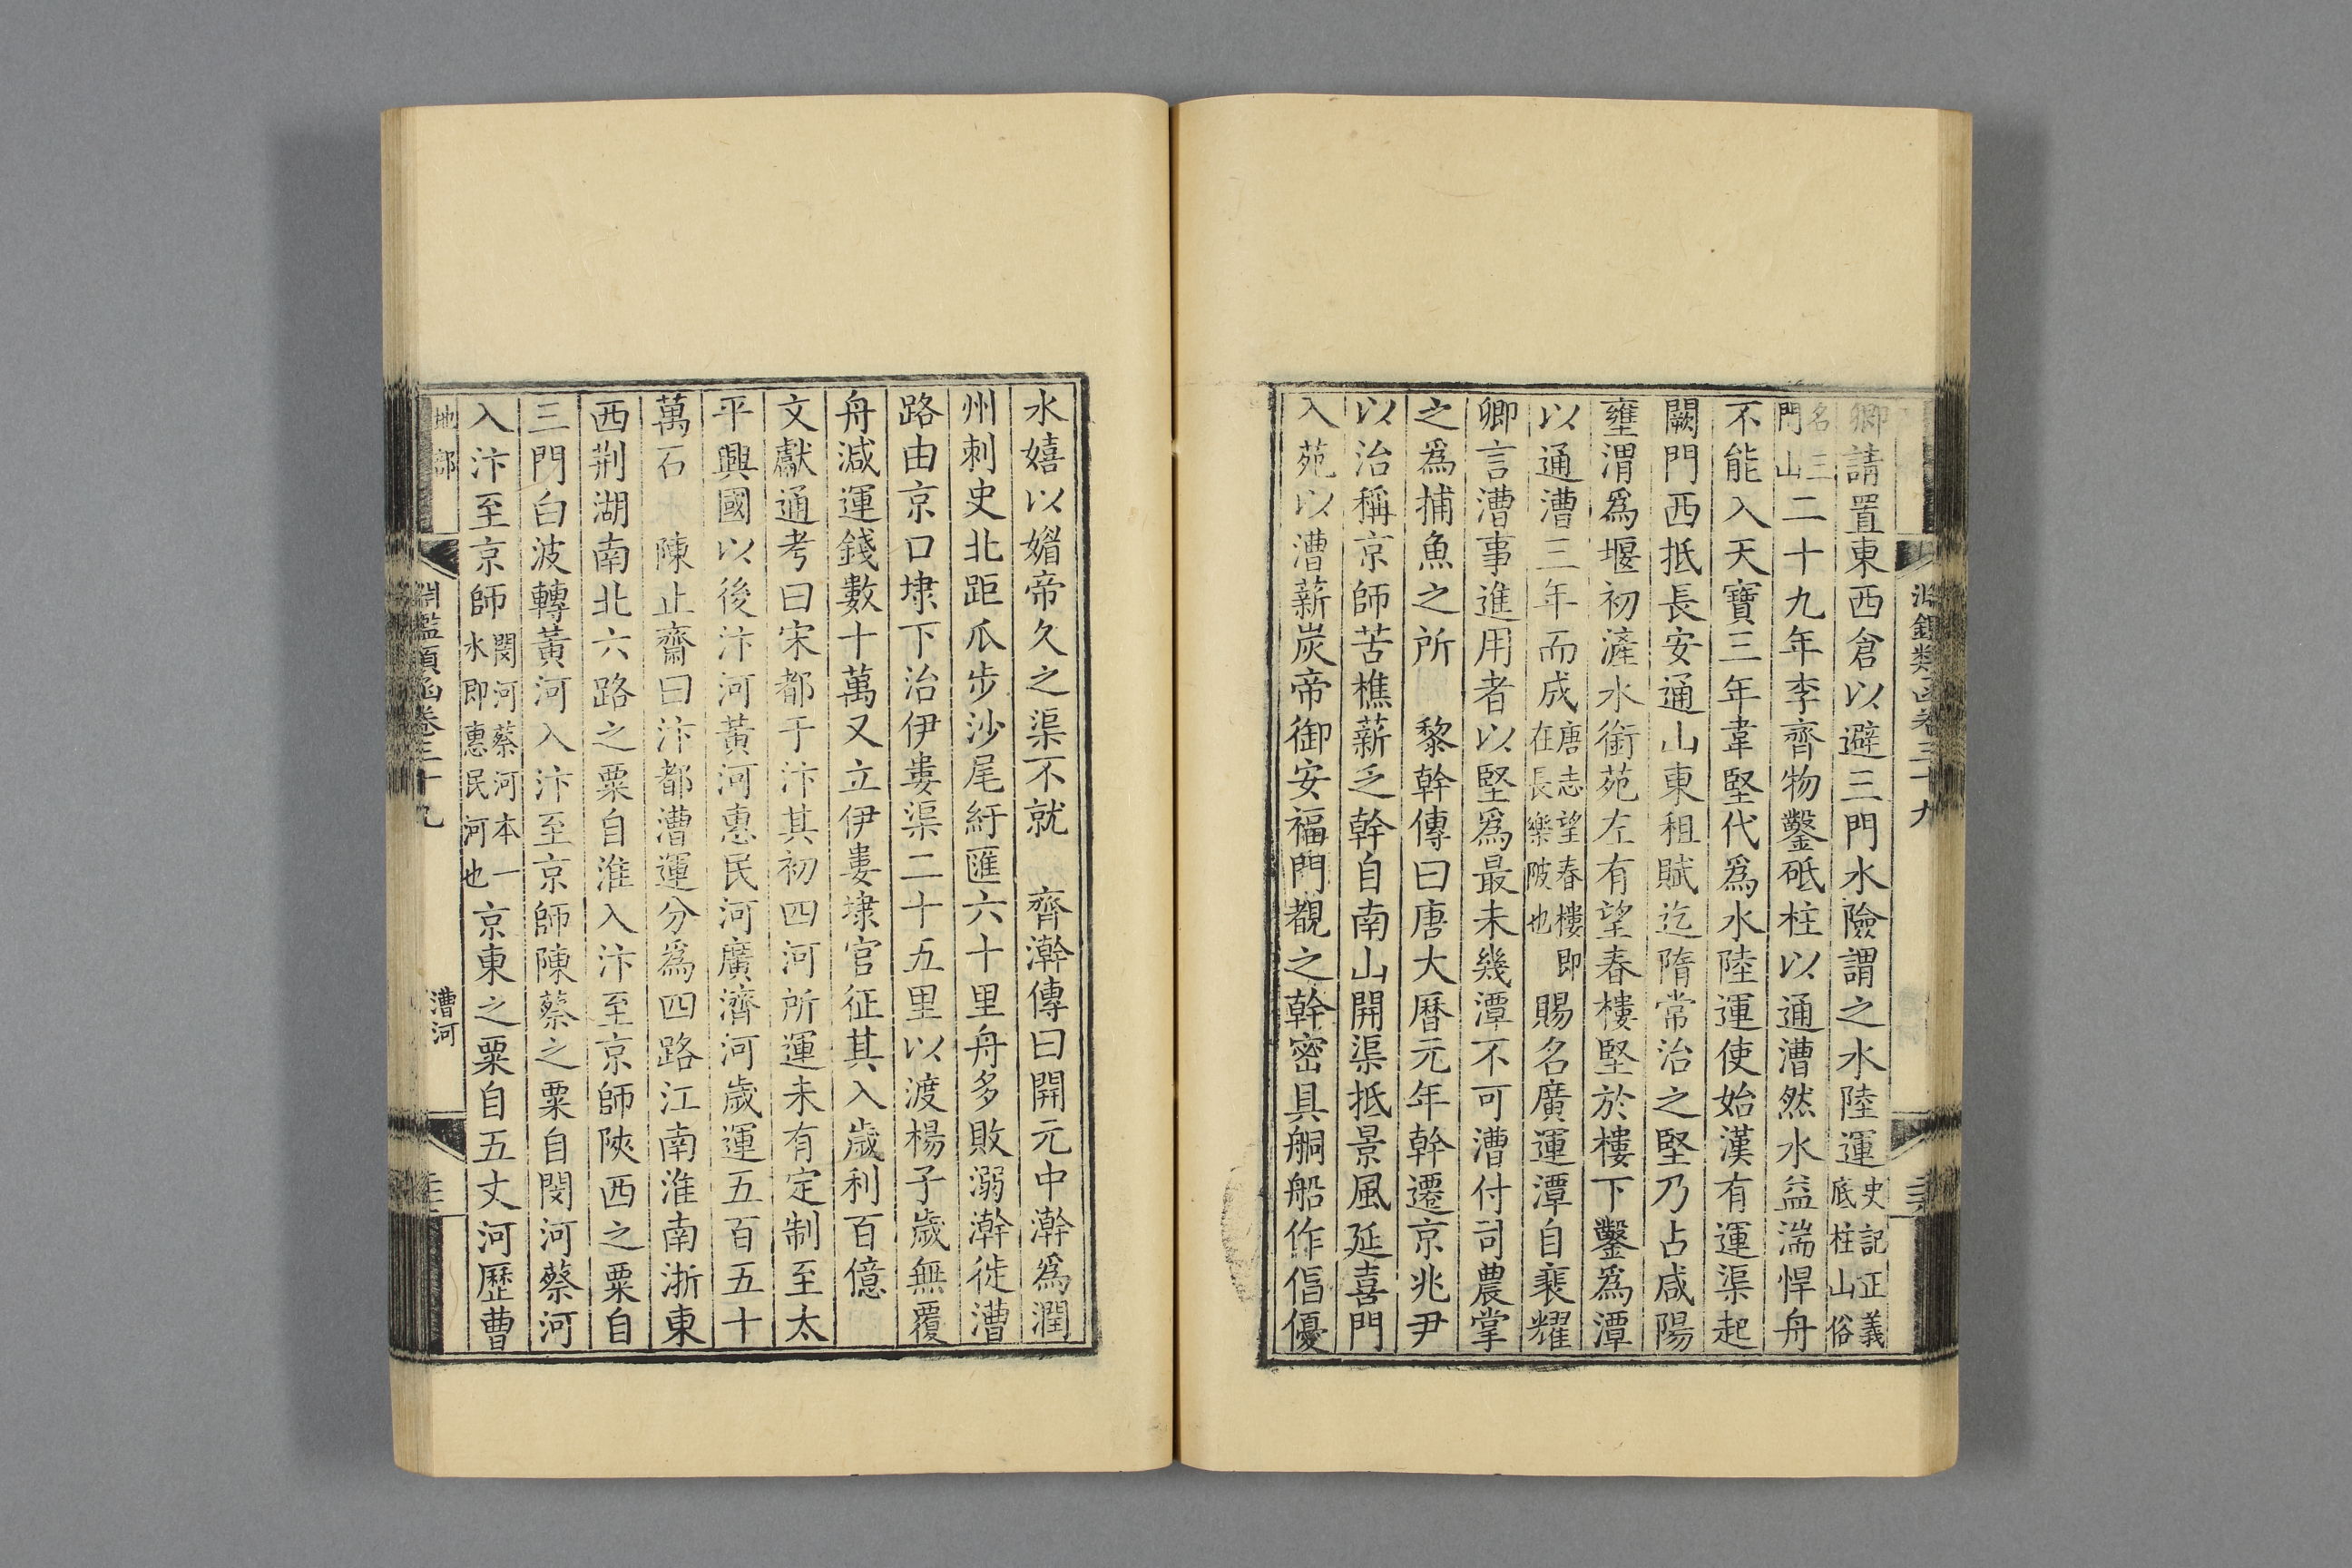 淵鑑類函卷三十九
卿請置東西倉以避三門水險謂之水陸運史記正義底柱山俗
名三門山二十九年李齊物鑿砥柱以通漕然水益湍悍舟
不能入天寶三年韋堅代爲水陸運使始漢有運渠起
闕門西抵長安通山東租賦迄隋常治之堅乃占咸陽
壅渭爲堰初滻水銜苑左有望春樓堅於樓下鑿爲潭
以通漕三年而成唐志望春樓即在長樂陂也賜名廣運潭自裴耀
卿言漕事進用者以堅爲最未幾潭不可漕付司農掌
之爲捕魚之所 黎幹傳曰唐大曆元年幹遷京兆尹
以治稱京師苦樵薪乏幹自南山開渠抵景風延喜門
入苑以漕薪炭帝御安福門觀之幹密具舸船作倡優
水嬉以媚帝久之渠不就 齊澣傳曰開元中澣爲潤
州刺史北距瓜步沙尾紆匯六十里舟多敗溺澣徙漕
路由京口埭下治伊婁渠二十五里以渡楊子歲無覆
舟減運錢數十萬又立伊婁埭官征其入歲利百億
文獻通考曰宋都于汴其初四河所運未有定制至太
平興國以後汴河黃河惠民河廣濟河歲運五百五十
萬石 陳止齋曰汴都漕運分爲四路江南淮南浙東
西荆湖南北六路之粟自淮入汴至京師陝西之粟自
三門白波轉黃河入汴至京師陳蔡之粟自閔河蔡河
入汴至京師閔河蔡河本一水即惠民河也京東之粟自五丈河歷曹
地部
淵鑑類函卷三十九
漕河